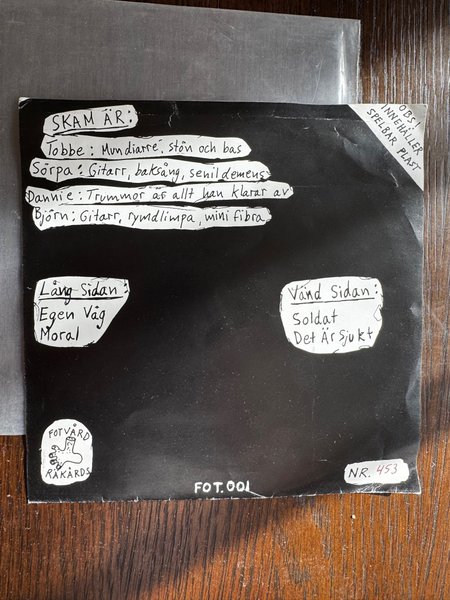 SKAM ÄR:
OBS!
INNEHÅLLER
SPELBAR PLAST
Tobbe: Mundiarré, stön och bas
Sörpa: Gitarr, baksång, senil demens
Dannie: Trummor är allt han klarar av
Björn: Gitarr, rymdlimpa, mini fibra
Lång Sidan:
Egen Väg
Moral
Vänd Sidan:
Soldat
Det Är Sjukt
FOTVÅRD
RÄKÅRDS
FOT.001
NR. 453